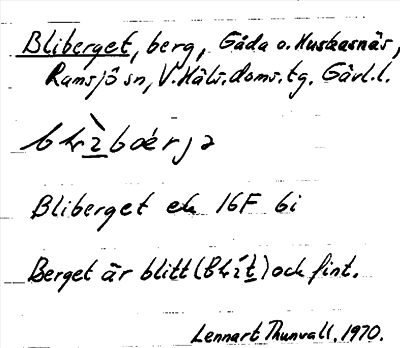 Bliberget, berg, Gåda o. Huskasnäs,
Ramsjö sn, V. Häls. doms. tg. Gävl. l.
Bliberget ek 16F 6i
Berget är blitt ( ) och fint.
Lennart Thunvall, 1970.